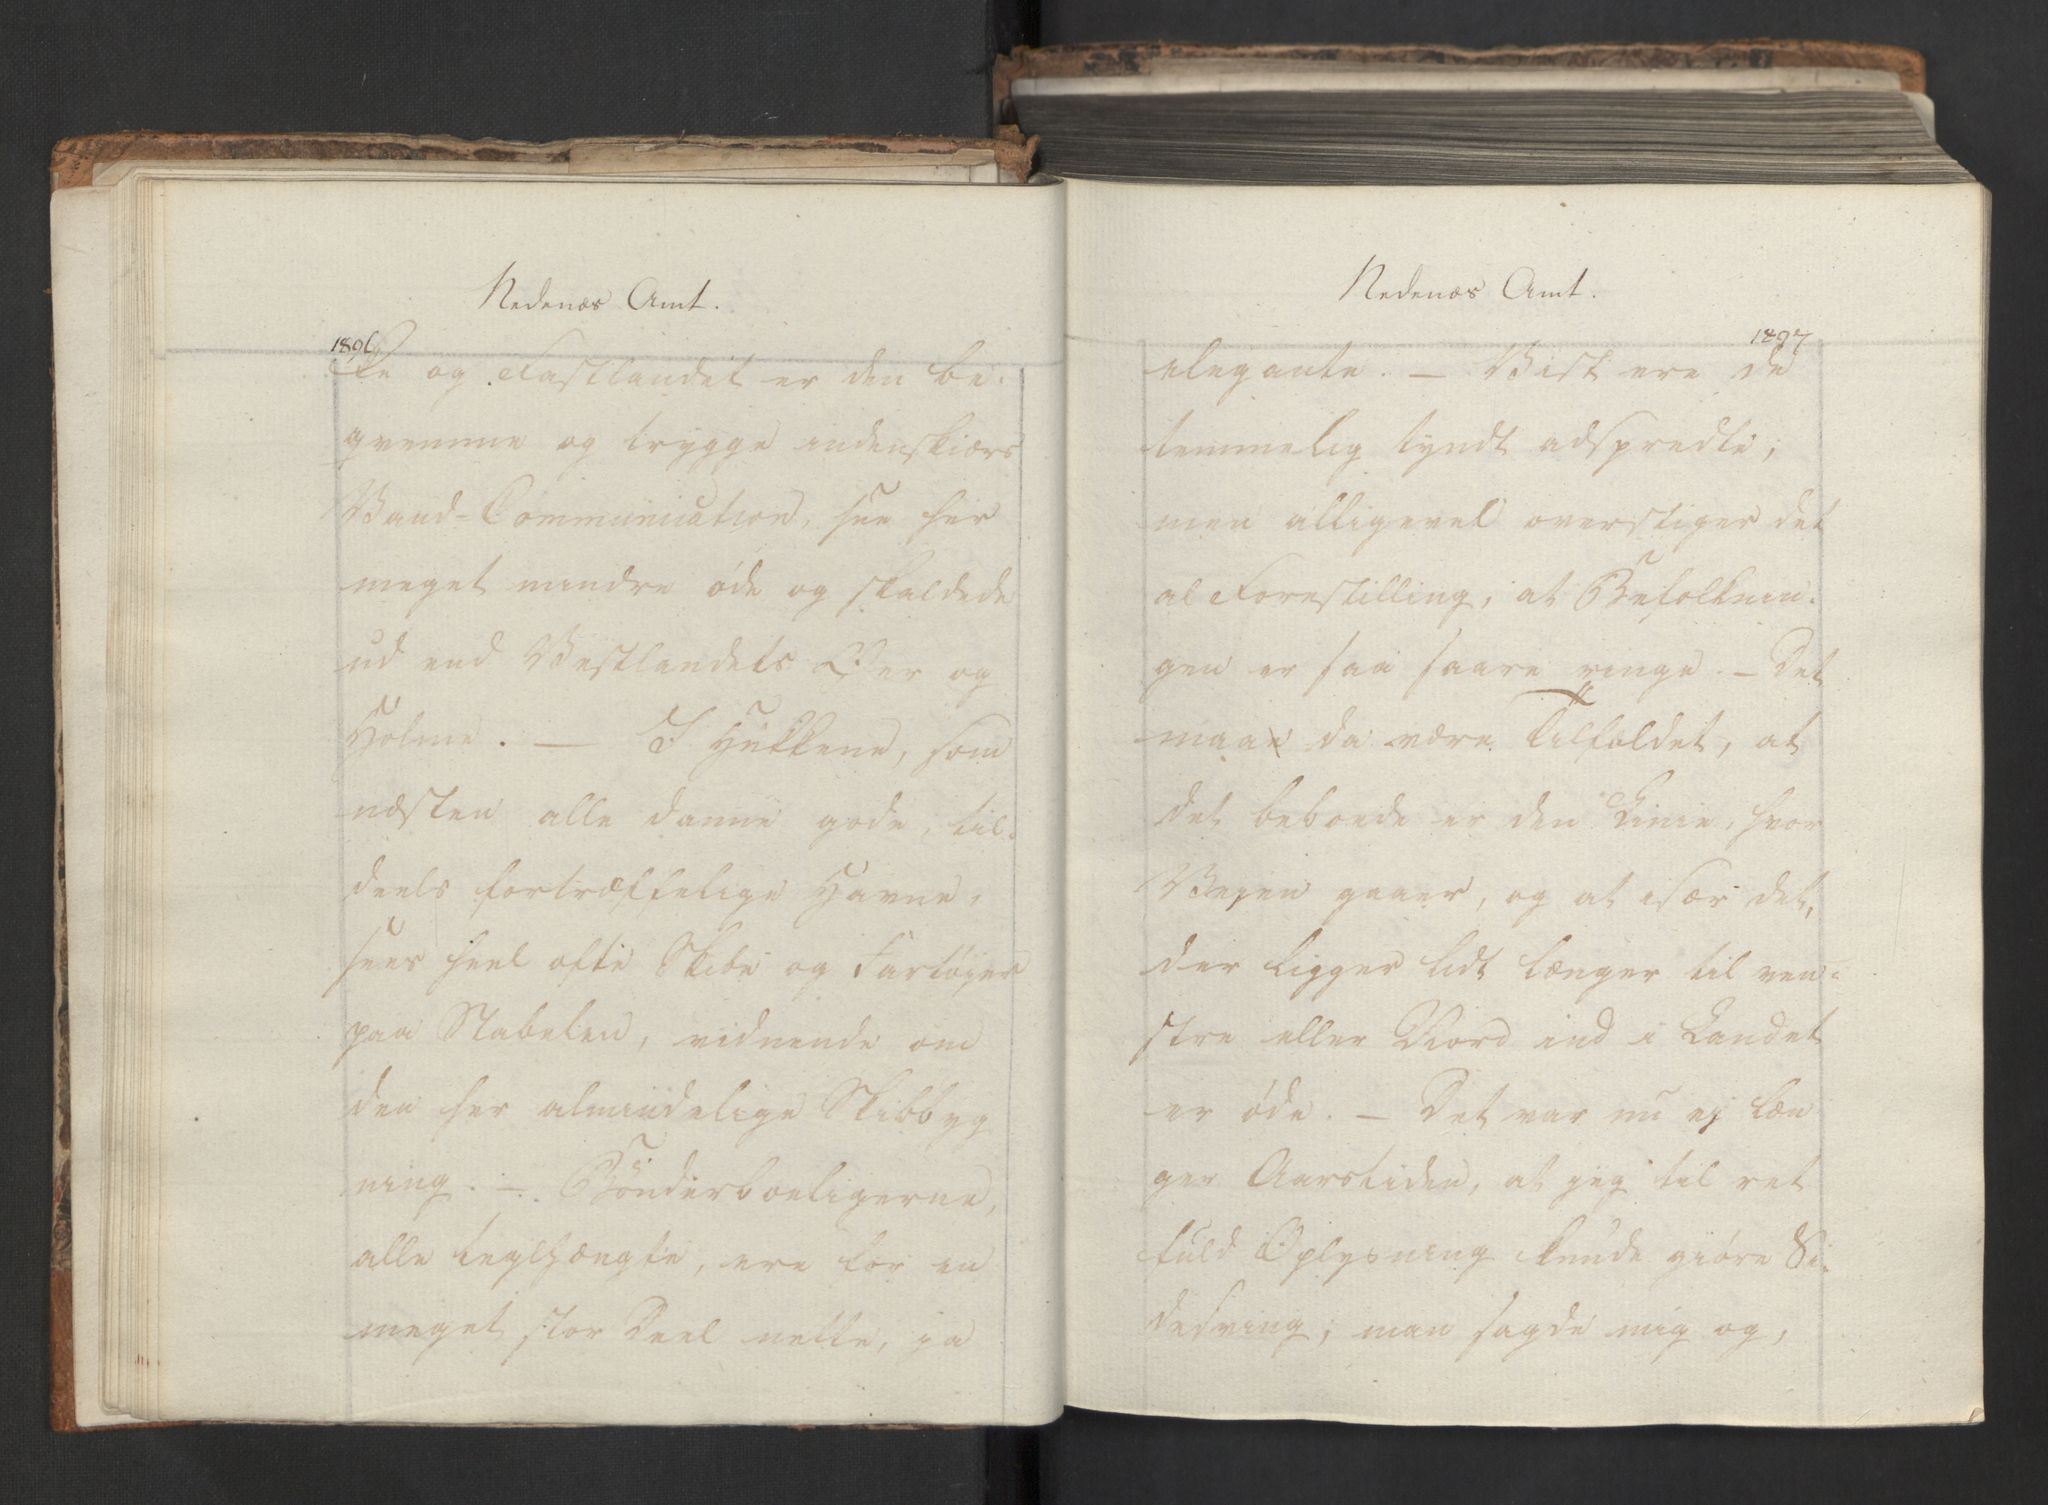 Nedenæs Amt.
1896
Øe og Fastlandet er den be-
qvemme og trygge indenskiærs
Vand-Communication, see her
meget mindre øde og skaldede
ud end Vestlandets Øer og
Holme. — I Hukkene, som
næsten alle danne gode, til-
deels fortræffelige Havne,
sees heel ofte Skibe og Fartøjer
paa Stabelen, vidnende om
den her almindelige Skibbyg
ning. — Bönderboeligerne,
alle teglhængte, ere for en
meget stor Deel nette, ja
Nedenæs Amt.
1897
elegante. — Vist ere de
temmelig tyndt adspredte;
men alligevel overstiger det
al Forestilling, at Befolknin-
gen er saa saare ringe. — Det
maae da være Tilfældet, at
det beboede er den Linie, hvor
Vejen gaaer, og at især det,
der ligger lidt længer til ven-
stre eller Nord ind i Landet
er øde. — Det var nu ej læn
ger Aarstiden, at jeg til ret
fuld Oplysning kunde giöre Si-
desving; man sagde mig og,